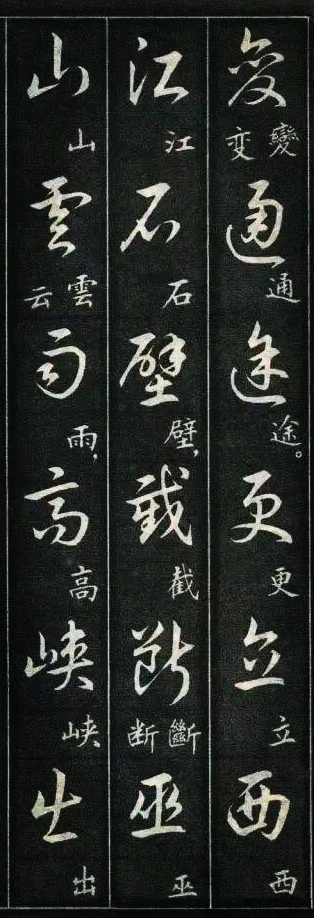 变通途更立西
變变 通 途。 更 立 西
江石壁截断巫
江 石 壁, 截 斷断 巫
山雲雨高峡出
山 雲云 雨, 高 峡 出